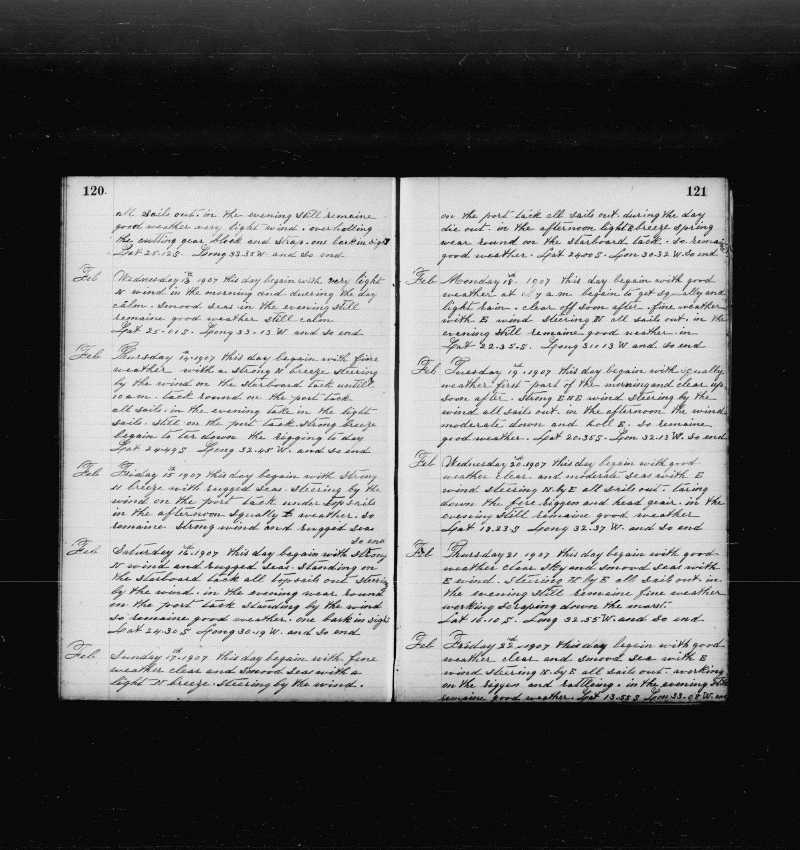 120.
all sails out. in the evening still remaine
good weather very light wind. overholling
the cutting gear block and strap. one bark in sight
Lat 25.12 S. Long 33.35 W. and so end
Feb Wednesday 13th 1907 this day begain with very light
N wind in the morning and during the day
calm. smood seas in the evening still
remaine good weather still calm
Lat 25-01 S. Long 33-13 W and so end
Feb Thursday 14th 1907 this day begain with fine
weather with a strong N breeze steering
by the wind on the starboard tack untill
10 a.m. tack round on the port tack
all sails. in the evening take in the light
sails. still on the port tack strong breeze
begain to tar down the rigging to day
Lat 24-49 S Long 32.45 W. and so end
Feb Friday 15th 1907 this day begain with strong
N breeze with rugged seas. steering by the
wind on the port tack under topsails
in the afternoon squally weather. so
remaine strong wind and rugged seas
so end
Feb Saturday 16th 1907 this day begain with strong
N wind and rugged seas. standing on
the starboard tack all topsails out steering
by the wind. in the evening wear round
on the port tack standing by the wind
so remaine good weather. one bark in sight
Lat 24-30 S Long 30-19 W. and so end
Feb Sunday 17th 1907 this day begain with fine
weather clear and smood seas with a
light N breeze. steering by the wind.
121
on the port tack all sails out. during the day
die out. in the afternoon light E breeze spring
wear round on the starboard tack. so remaine
good weather. Lat 2400 S. Lon 30-32 W. so end
Feb Monday 18th 1907 this day begain with good
weather at 7 a.m. begain to get squally and
light rain. clear off soon after. fine weather
with E wind steering N all sail out. in the
evening still remaine good weather. in
Lat 22.35 S. Long 31 13 W and so end
Feb Tuesday 19th 1907 this day begain with squally
weather first part of the morning and clear up
soon after. strong ENE wind steering by the
wind all sails out. in the afternoon the wind
moderate down and holl E. so remaine
good weather. Lat 20.35 S Lon 32.13 W. so end
Feb Wednesday 20th 1907 this day begain with good
weather clear and moderate seas with E
wind steering N by E all sails out. taring
down the fore riggen and head gear. in the
evening still remaine good weather
Lat 18.23 S Long 32.37 W. and so end
Feb Thursday 21 1907 this day begain with good
weather clear sky and smood seas with
E wind. steering N by E all sail out. in
the evening still remaine fine weather
working scraping down the mast.
Lat 16.10 S. Long 32.55 W. and so end
Feb Friday 22nd 1907 this day begain with good
weather clear and smood sea with E
wind steering N. by E all sails out. working
on the riggen and rattling. in the evening still
remaine good weather. Lat 13.55 S Lon 33.08 W. end